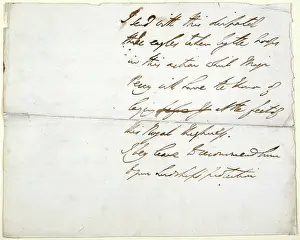 I send with this dispatch
three eagles taken by the troops
in this action which Major
Percy will have the honor of
laying at the feet of
his Royal Highness.
I beg leave to recommend him
to your Lordship's protection